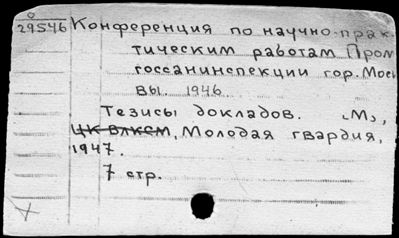 0
29546 Конференция по научно-прак-
тическим работам Пром
госсанинспекции гор. Моск
вы. 1946
Тезисы докладов. „М",
ЦК ВЛКСМ, Молодая гвардия,
1947.
7 стр.